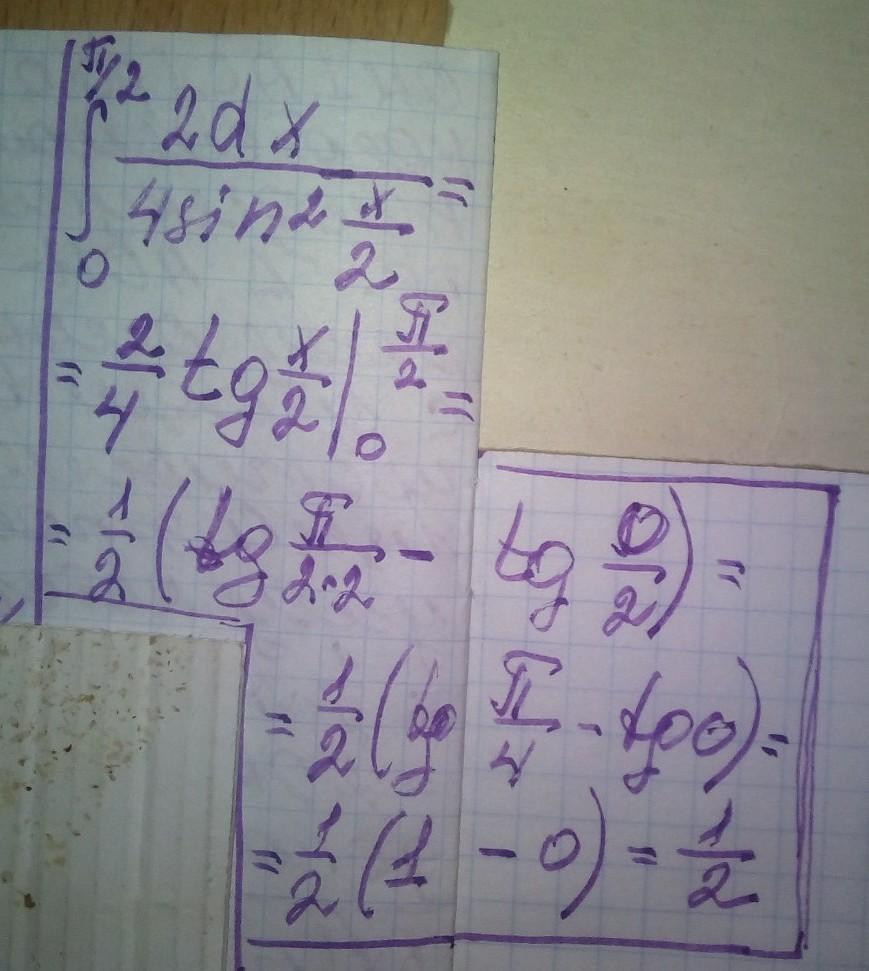 ∫₀^{π/2} 2dx / (4sin² x/2) =
= 2/4 tg x/2 |₀^{π/2} =
= 1/2 (tg π/(2·2) - tg 0/2) =
= 1/2 (tg π/4 - tg 0) =
= 1/2 (1 - 0) = 1/2